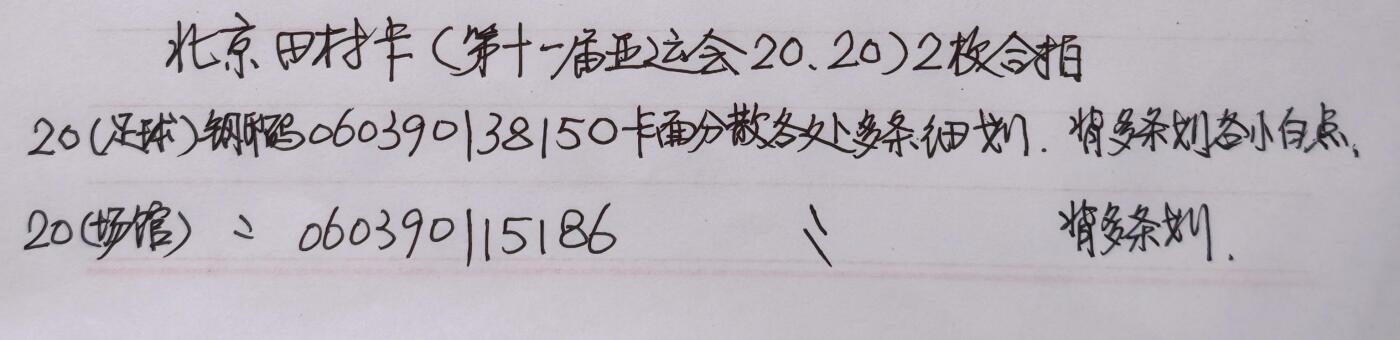 北京田村卡(第十一届亚运会20.20)2枚合拍
20(足球)钢印码060390138150卡面分散各处多条细划.背多条划各小白点.
20(场馆) 〃 060390115186 〃 背多条划.